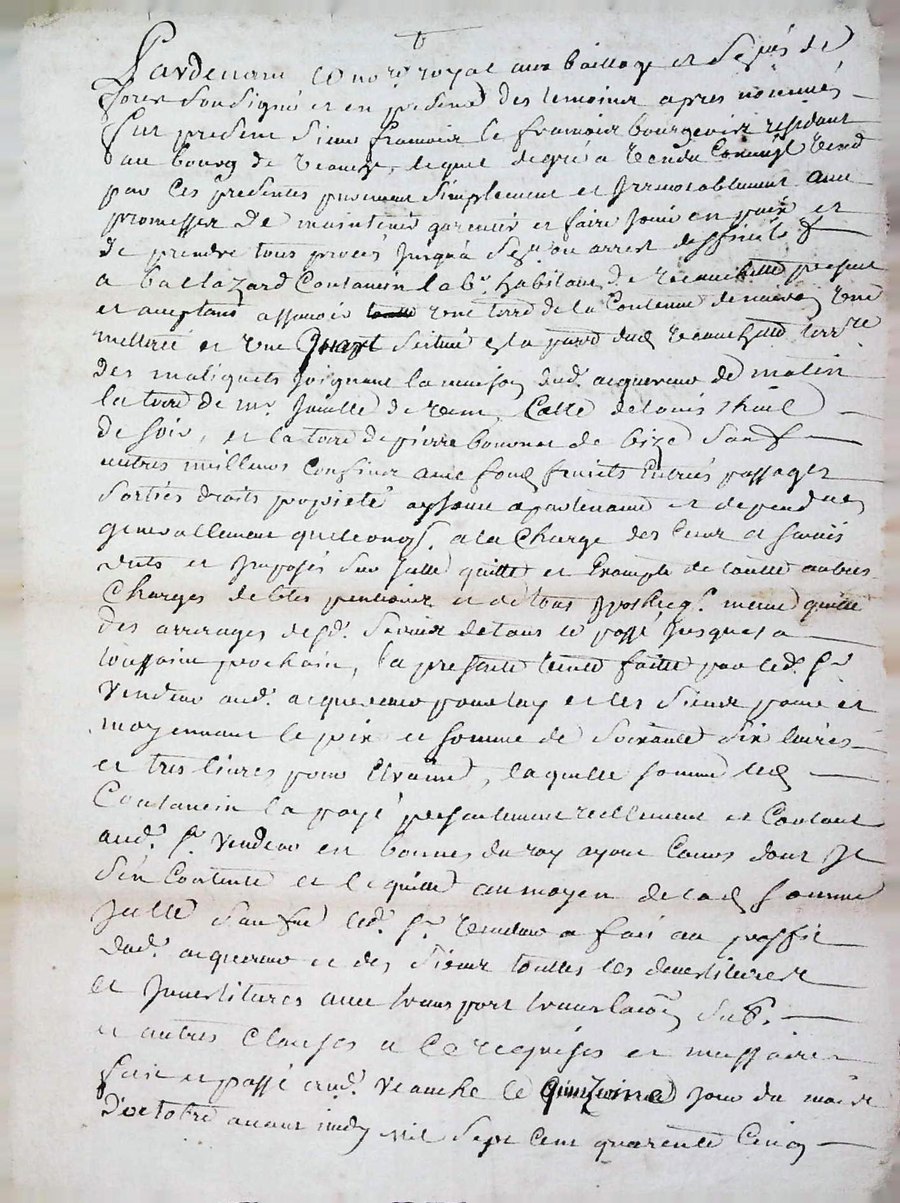 Pardevant le no.re royal aux bailliage et
forez soussigné et en presence des temoins apres nommés
fut present sieur françois le françois bourgeois residant
au bourg de veauche, lequel de gré a vendu comme il vend
par ces presentes purement simplement et irrevocablement avec
promesse de maintenir garentir et faire jouir en paix et
de prendre tous procés jusqu'a ou arrest deffinitif
a baltazard Coutancin lab.r habitant de present
et acceptant assavoir une terre de la contenue de une
metterée et une quart située en la parr.e dud. terr.re
des maliquets joignant la maison dud. acquereur de matin
la terre de mr. de celle de louis
de soir, et la terre de pierre de bize sauf
autres meilleurs confins avec ses fonds fruits entrées passages
sorties droits proprieté apartenances et dependances
generallement quelconqs. a la charge des cens et servis
dus et imposés sur icelle quitte et exempte de toutte autres
charges debtes pensions et de tous hypotheqs. meme quitte
des arrerages desd. servis de tout le passé jusques a
toussaint prochain, la presente vente faitte par led. sr.
vendeur aud. acquereur pour luy et les siens pour et
moyennant le prix et somme de soixante six livres
et tres livres pour etraine, laquelle somme led.
Coutancin la payé presentement reellement et contant
aud. sr. vendeur en bonnes du roy ayant cours dont il
s'en contente et le quitte au moyen de lad. somme
icelle led. sr. vendeur a fait au proffit
dud. acquereur et des siens touttes les devestitures
et investitures avec transport translaon
et autres clauses a ce requises et necessaires
fait et passé aud. veauche le quinzieme jour du mois
d'octobre avant midy mil sept cent quarente cinq